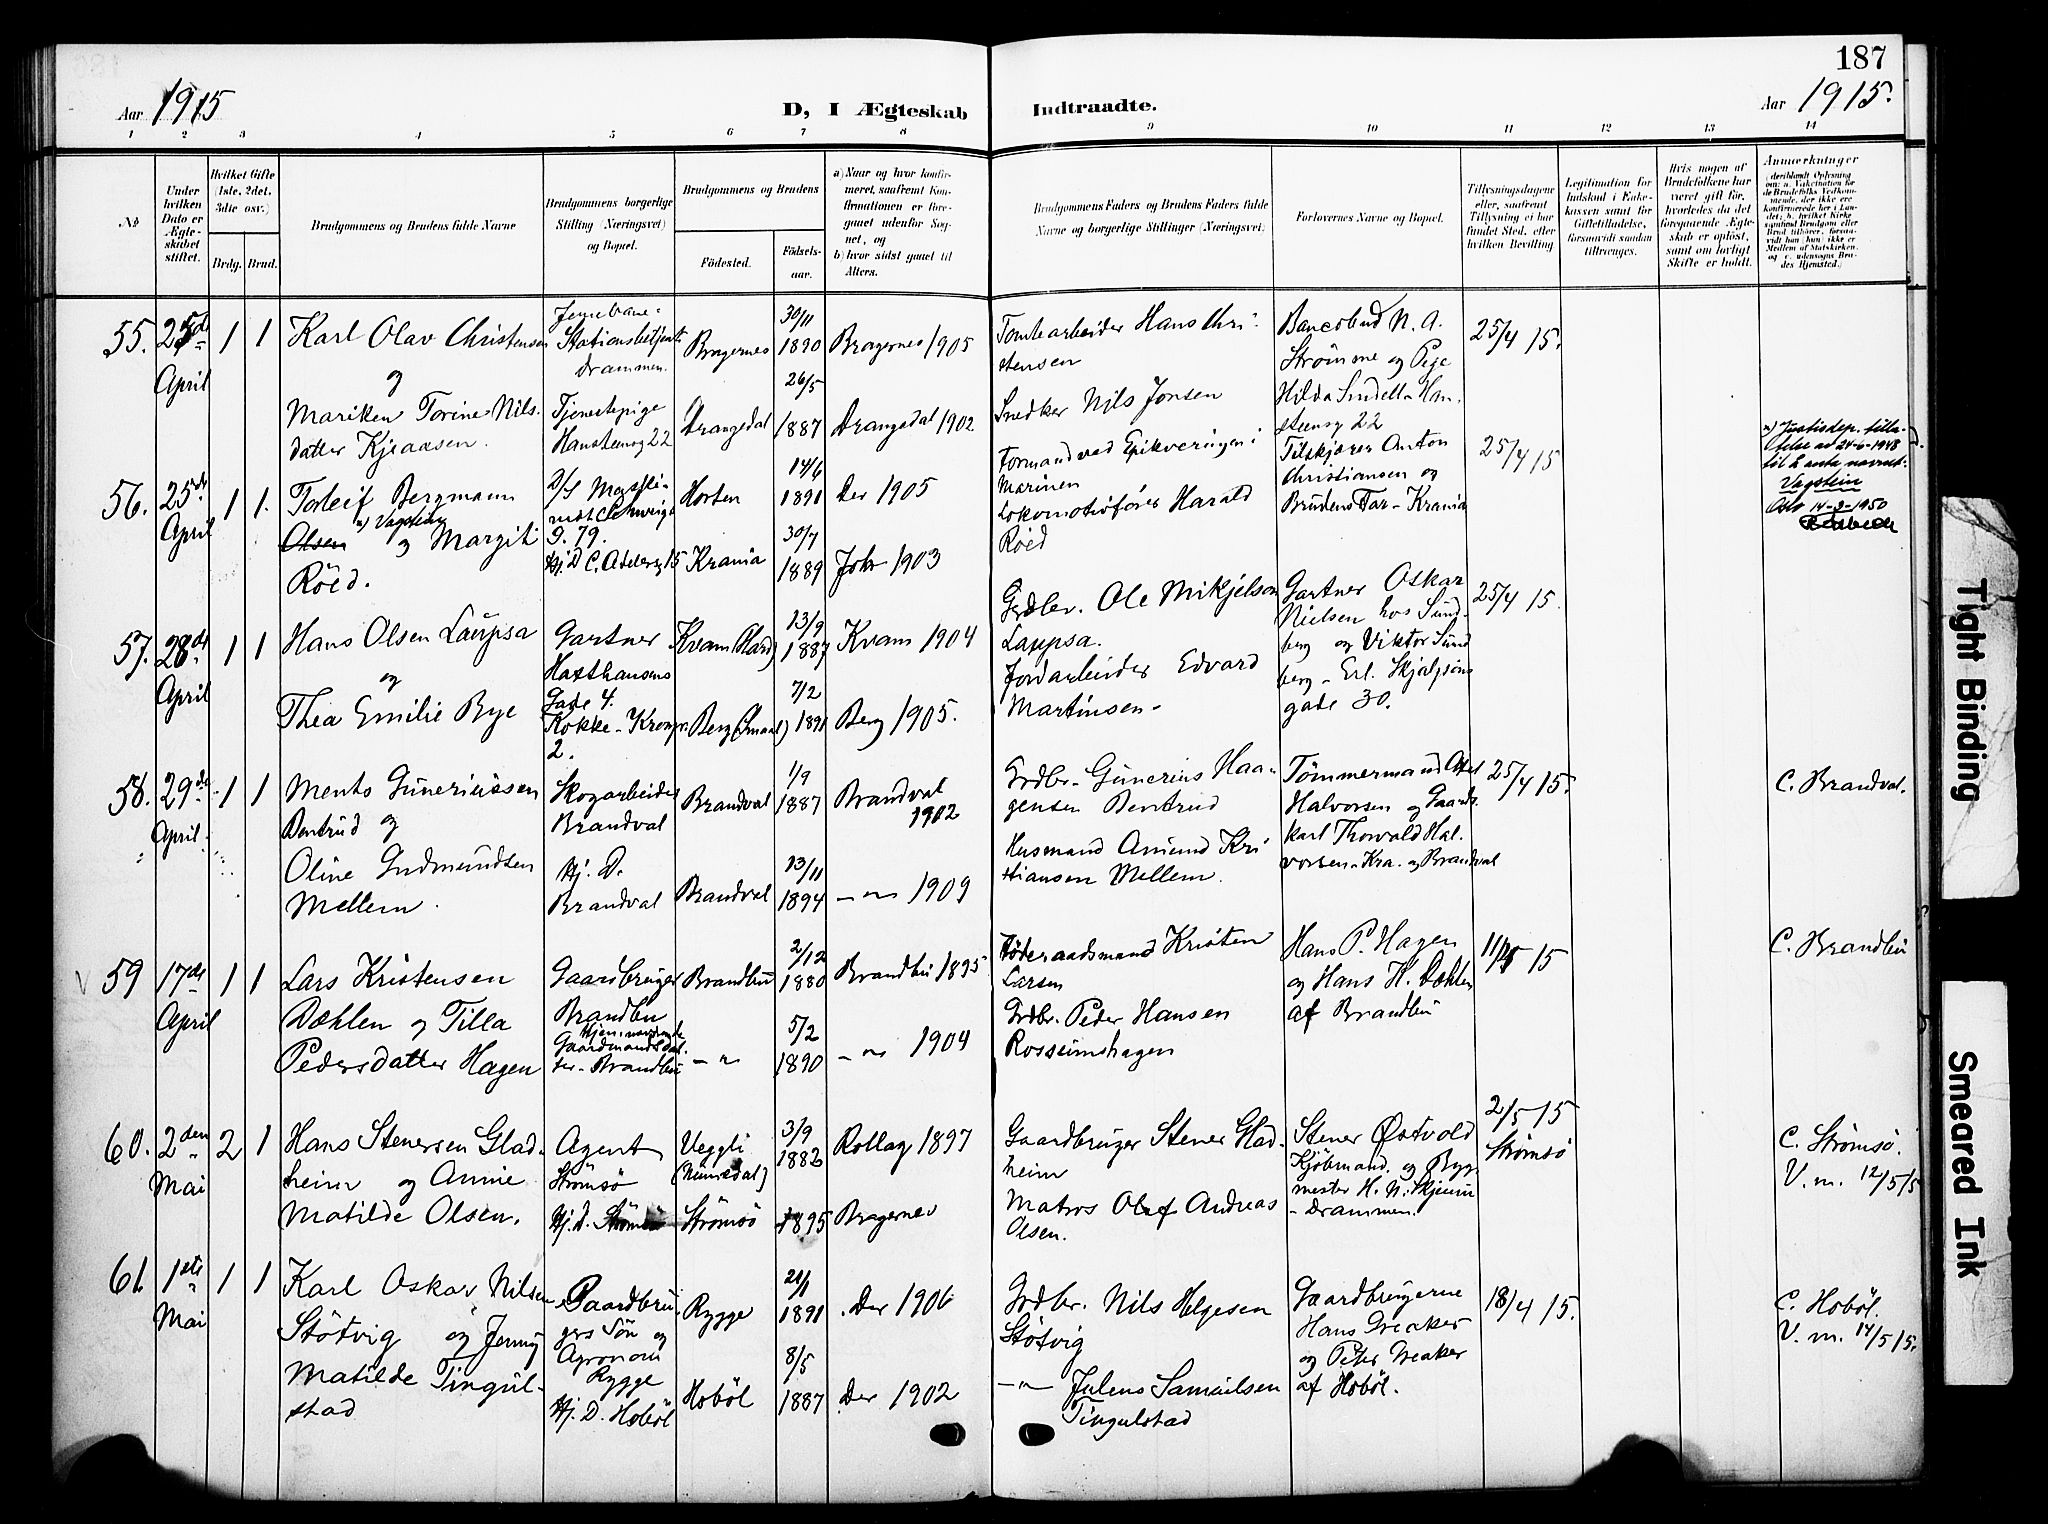 187
Aar 1915
D, I Ægteskab Indtraadte.
Aar 1915.
1 2 3 4 5 6 7 8 9 10 11 12 13 14
No
Under hvilken Dato er Ægteskabet stiftet.
Hvilket Gifte (1ste, 2det, 3die osv.)
Brdg. Brud.
Brudgommens og Brudens fulde Navne
Brudgommens borgerlige Stilling (Næringsvei) og Bopæl.
Brudgommens og Brudens
Fødested.
Fødselsaar.
a) Naar og hvor konfirmeret, saafremt Konfirmationen er foregaaet udenfor Sognet, og
b) hvor sidst gaaet til Alters.
Brudgommens Faders og Brudens Faders fulde Navne og borgerlige Stillinger (Næringsvei)
Forlovernes Navne og Bopæl.
Tillysningsdagene eller, saafremt Tillysning ei har fundet Sted, efter hvilken Bevilling
Legitimation for Indskud i Enkekassen samt for Giftetilladelse, forsaavidt saadan tiltrænges.
Hvis nogen af Brudefolkene har været gift før, hvorledes da det foregaaende Ægteskab er opløst, samt om lovligt Skifte er holdt.
Anmærkninger
55. 25de April 1 1
Karl Olav Christensen
og
Mariken Torine Nils-
datter Kjeaasen.
Jernebane-
Stationsbetjent
Drammen.
Tjenestepige
Hansteensg 22
Bragernes
Drangedal
30/11
1890
26/5
1887
Bragernes 1905
Drangedal 1902
Tomtearbeider Hans Chri-
stensen
Snedker Nils Jonsen
Bancobud N. A.
Strømme og Pige
Hilda
steensg 22
25/4 15.
56. 25de April 1 1.
Torleif Bergmann
Olsen x) Vagstein og Margit
Röed.
D/S
9. 79.
Hj. D C. Adelersg 15
Horten
Krania
14/6
1891
30/7
1889
Der 1905
Joh 1903
Formand ved
Marinen
Lokomotivfører Harald
Röed
Tilskjærer Anton
Christiansen og
Brudens Far - Krania
25/4 15
x) Justisdep. tilla-
telse av 24-6-1948
til å anta navnet:
Vagstein
Oslo 14-3-1950
57. 28de April 1 1
Hans Olsen Laupsa
og
Thea Emilie Bye
Gartner
Haxthausens
Gade 4.
Kokke - Kronpr.
2.
Kvam (Hard)
Berg (Smaal)
13/9
1887
7/2
1891
Kvam 1904
Berg 1905.
Grdbr. Ole Mikjelson
Laupsa.
Jordarbeider Edvard
Martinsen -
Gartner Oskar
Nielsen hos Sund-
berg og Viktor Sund
berg - Erl. Skjalgsons
gade 30.
25/4 15.
58. 29de April. 1 1
Mento Guneriussen
Bentrud og
Oline Gudmundsen
Mellem.
Skogarbeider
Brandval
Hj. D.
Brandval
Brandval
Brandval
1/9
1887
13/11
1894
Brandval
1902
- " - 1909
Grdbr. Gunerius Haa-
gensen Bentrud
Husmand Amund Kri
stiansen Mellem.
Tømmermand Axel
Halvorsen og Gaards-
karl Thorvald Hal-
vorsen - Kra. og Brandval
25/4 15.
C. Brandval.
V 59 17de April 1 1
Lars Kristensen
Dæhlen og Tilla
Pedersdatter Hagen
Gaardbruger
Brandbu
Hjemmeværende
Gaardmandsdat-
ter - Brandbu
Brandbu
- " -
2/12
1880
5/2
1890
Brandbu 1895
- " - 1904
Føderaadsmand Kristen
Larsen
Grdbr. Peder Hansen
Rossumshagen
Hans P. Hagen
og Hans K. Dæhlen
af Brandbu
C. Brandbu
60. 2den Mai 2 1
Hans Stenersen Glad-
heim og Annie
Matilde Olsen.
Agent
Strømsø
Hj. D. Strømsø
Veggli
(Numedal)
Strømsø
3/9
1882
1895
Rollag 1897
Bragernes
Gaardbruger Stener Glad-
heim
Matros Olaf Andreas
Olsen.
Stener Østvold
Kjøbmand. og Byg-
mester H. N. Skjeum
- Drammen.
2/5 15
Strømsö
C. Strömsö.
V. m. 12/5 15
61. 1ste Mai 1 1
Karl Oskar Nilsen
Støtvig og Jenny
Matilde Tingul-
stad
Gaardbru-
gers Sön og
Agronom
Rygge
Hj. D. Hoböl
Rygge
Hoböl
21/1
1891
8/5
1887
Der 1906
Der 1902
Grdbr. Nils Helgesen
Støtvig
- " - Julens Samuelsen
Tingulstad
Gaardbrugerne
Hans Greaker
og Peter Greaker
af Hoböl.
18/4 15.
C. Hoböl.
V. m. 14/5 15.
Tight Binding
Smeared Ink